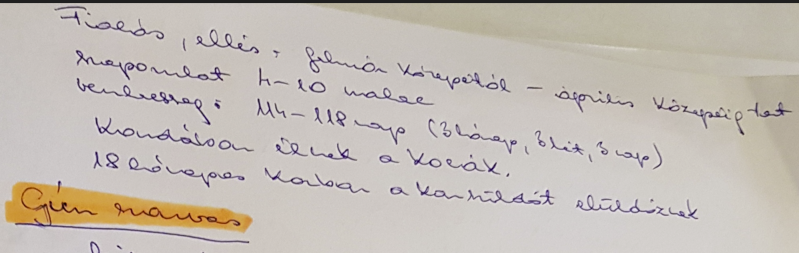 Fialás, ellés: február közepétől – április közepéig tart
szaporulat 4–10 malac
vemhesség: 114–118 nap (3 hónap, 3 hét, 3 nap)
Kondában élnek a kocák.
18 hónapos korban a kansüldőt elüldözik
Gím szarvas